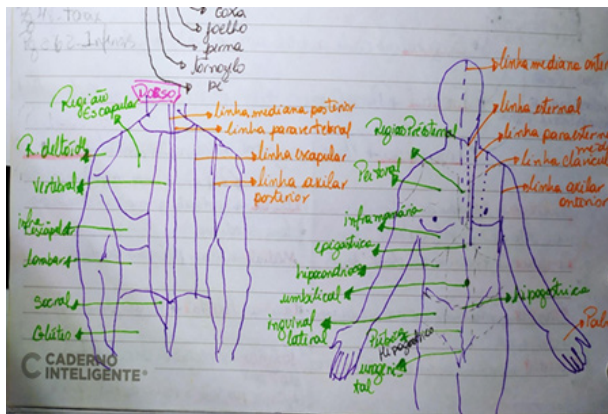 coxa
joelho
perna
tornozelo
pé
DORSO
Região
Escapular
R. deltoide
vertebral
infra
escapular
lombar
sacral
Glúteo
linha mediana posterior
linha paravertebral
linha escapular
linha axilar
posterior
linha mediana anter
linha esternal
linha paraesternal
linha clavicul
linha axilar
anterior
Região Presternal
Peitoral
inframamária
epigástrica
hipocondrios
umbilical
inguinal
lateral
hipogástrica
Hipogástrico
urogeni
tal
Pal
CADERNO
INTELIGENTE®